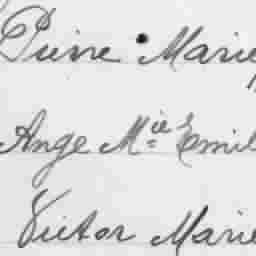 Pierre Marie
Ange Mie Emil
Victor Marie